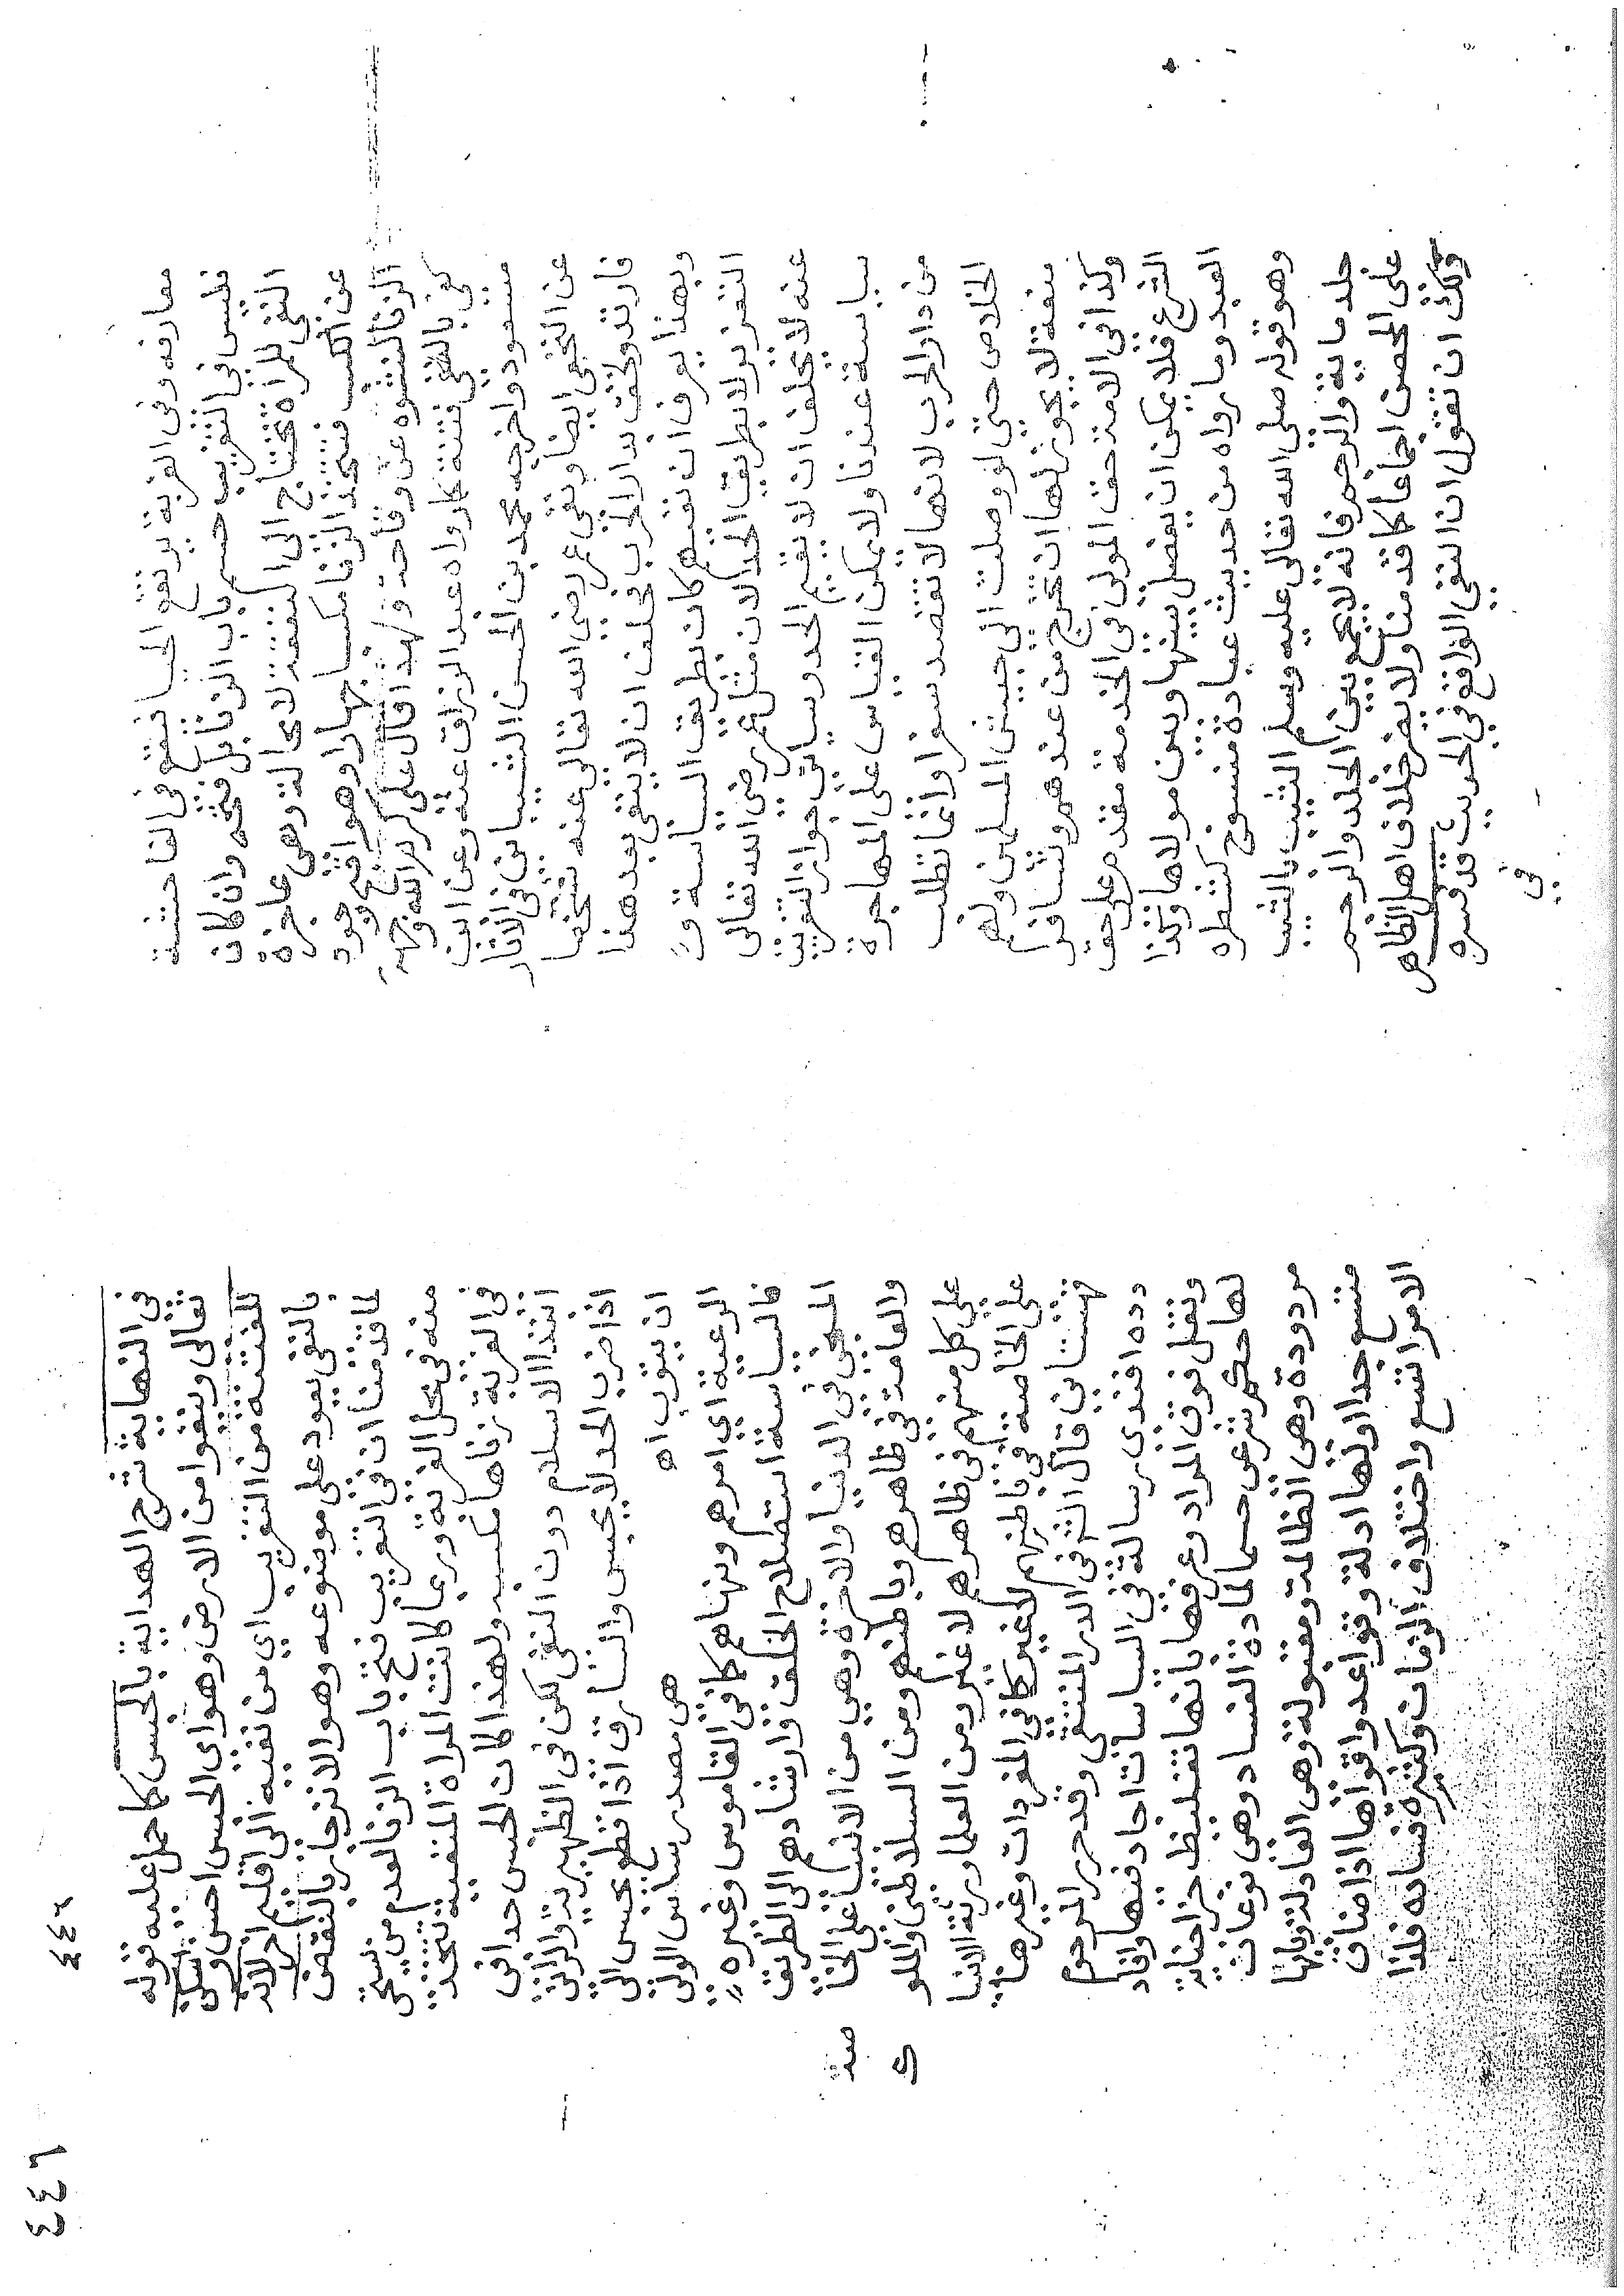 معارفه وفى الغربة يرتفع الحيا فتقع فى الفاحشة
فليس فى التغريب حسم باب الزنا بل فتحه وان كان
النفى للمراة تحتاج الى النفقة لا محالة وهى عاجزة
عن الكسب فتتخذ الزنا مكسبا جهارا وهو اقبح وجوه
الزنا لنشوه عن وقاحة ولهذا قال على كرم الله وجهه
كفى بالنفى فتنة كما رواه عبد الرزاق عنه وعن ابن
مسعود واخرجه محمد بن الحسن الشيبانى فى الاثار
عن النخعى ايضا ونفى عمر رضى الله تعالى عنه شخصا
فارتد ولحق بدار الحرب فحلف ان لا ينفى بعد هذا
وبهذا يعرف ان نفيهم كان بطريق السياسة و
التعزير لا بطريق الحد لان مثل عمر رضى الله تعالى
عنه لا يحلف ان لا يقيم الحد وسياتى جواز التعزير
سياسة عندنا ولا يمكن القياس على المهاجرة
من دار الحرب لانها لا تقصد سفرا وانما تطلب
الخلاص حتى لو وصلت الى جيش المسلمين ولهم
منعة لا يجوز لها ان تخرج من عندهم وتسافر
وكذا فى الامة حق المولى فى الخدمة مقدم على حق
الشرع فلا يمكن ان يفصل بينها وبين مولاها وكذا
العبد وما رواه من حديث عبادة منسوخ كشطره
وهو قوله صلى الله تعالى عليه وسلم الثيب بالثيب
جلد ماية والرجم فانه لا يجمع بين الجلد والرجم
على المحصن اجماعا كما قدمنا ولا يضر خلاف اهل الظاهر
ولك ان تقول ان النفى الواقع فى الحديث قد فسره
فى
٤٤٢
٤٤٦
فى النهاية شرح الهداية بالحبس كما حمل عليه قوله
تعالى وينفوا من الارض وهو اى الحبس احسن واسكن
للفتنة من التغريب اي من نفيه الى اقليم اخر لانه
بالنفى يعود على موضوعه وهو الانزجار بالنقض
لما قدمنا ان فى التغريب فتح باب الزنا لعدم من يستحى
منه فى محل الغربة وربما كانت المراة المنفية تتخذ
فى الغربة زناها مكسبه ولهذا كان الحبس حدا فى
ابتدا الاسلام دون النفى لكن فى الظهيرية والزانى
اذا ضرب الحد لا يحبس والسارق اذا قطع يحبس الى
ان يتوب اه هى مصدر ساس الوالى
الرعية اي امرهم ونهاهم كما فى القاموس وغيره
فالسياسة استصلاح الخلق وارشادهم الى الطريق
المنجى فى الدنيا والاخرة وهي من الانبيا على الخا
صة
والعامة فى ظاهرهم وباطنهم ومن السلاطين والملو
ك
على كل منهم فى ظاهرهم لا غير ومن العلما ورثة الانبيا
على الخاصة فى باطنهم لا غير كما فى المفردات وغيرها
قهستانى قال الش فى الدر المنتقى وقد حرر المرحوم
دده افندى رسالته فى السياسات اجاد فيها وافاد
ونقل فوق المراد وعرفها بانها تغليظ جزا جناية
لها حكم شرعى حسما لمادة الفساد وهى نوعان
مردودة وهى الظالمة ومقبولة وهى العادلة وبابها
متسع جدا ولها ادلة وقواعد واقواها اذا ضاق
الامر اتسع واختلاف الزمان وكثرة فساده فلذا